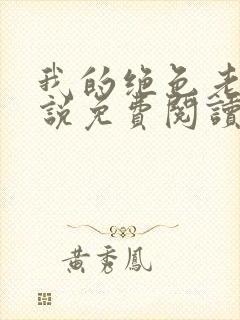 我的绝色老
说免費閱讀
黃秀鳳